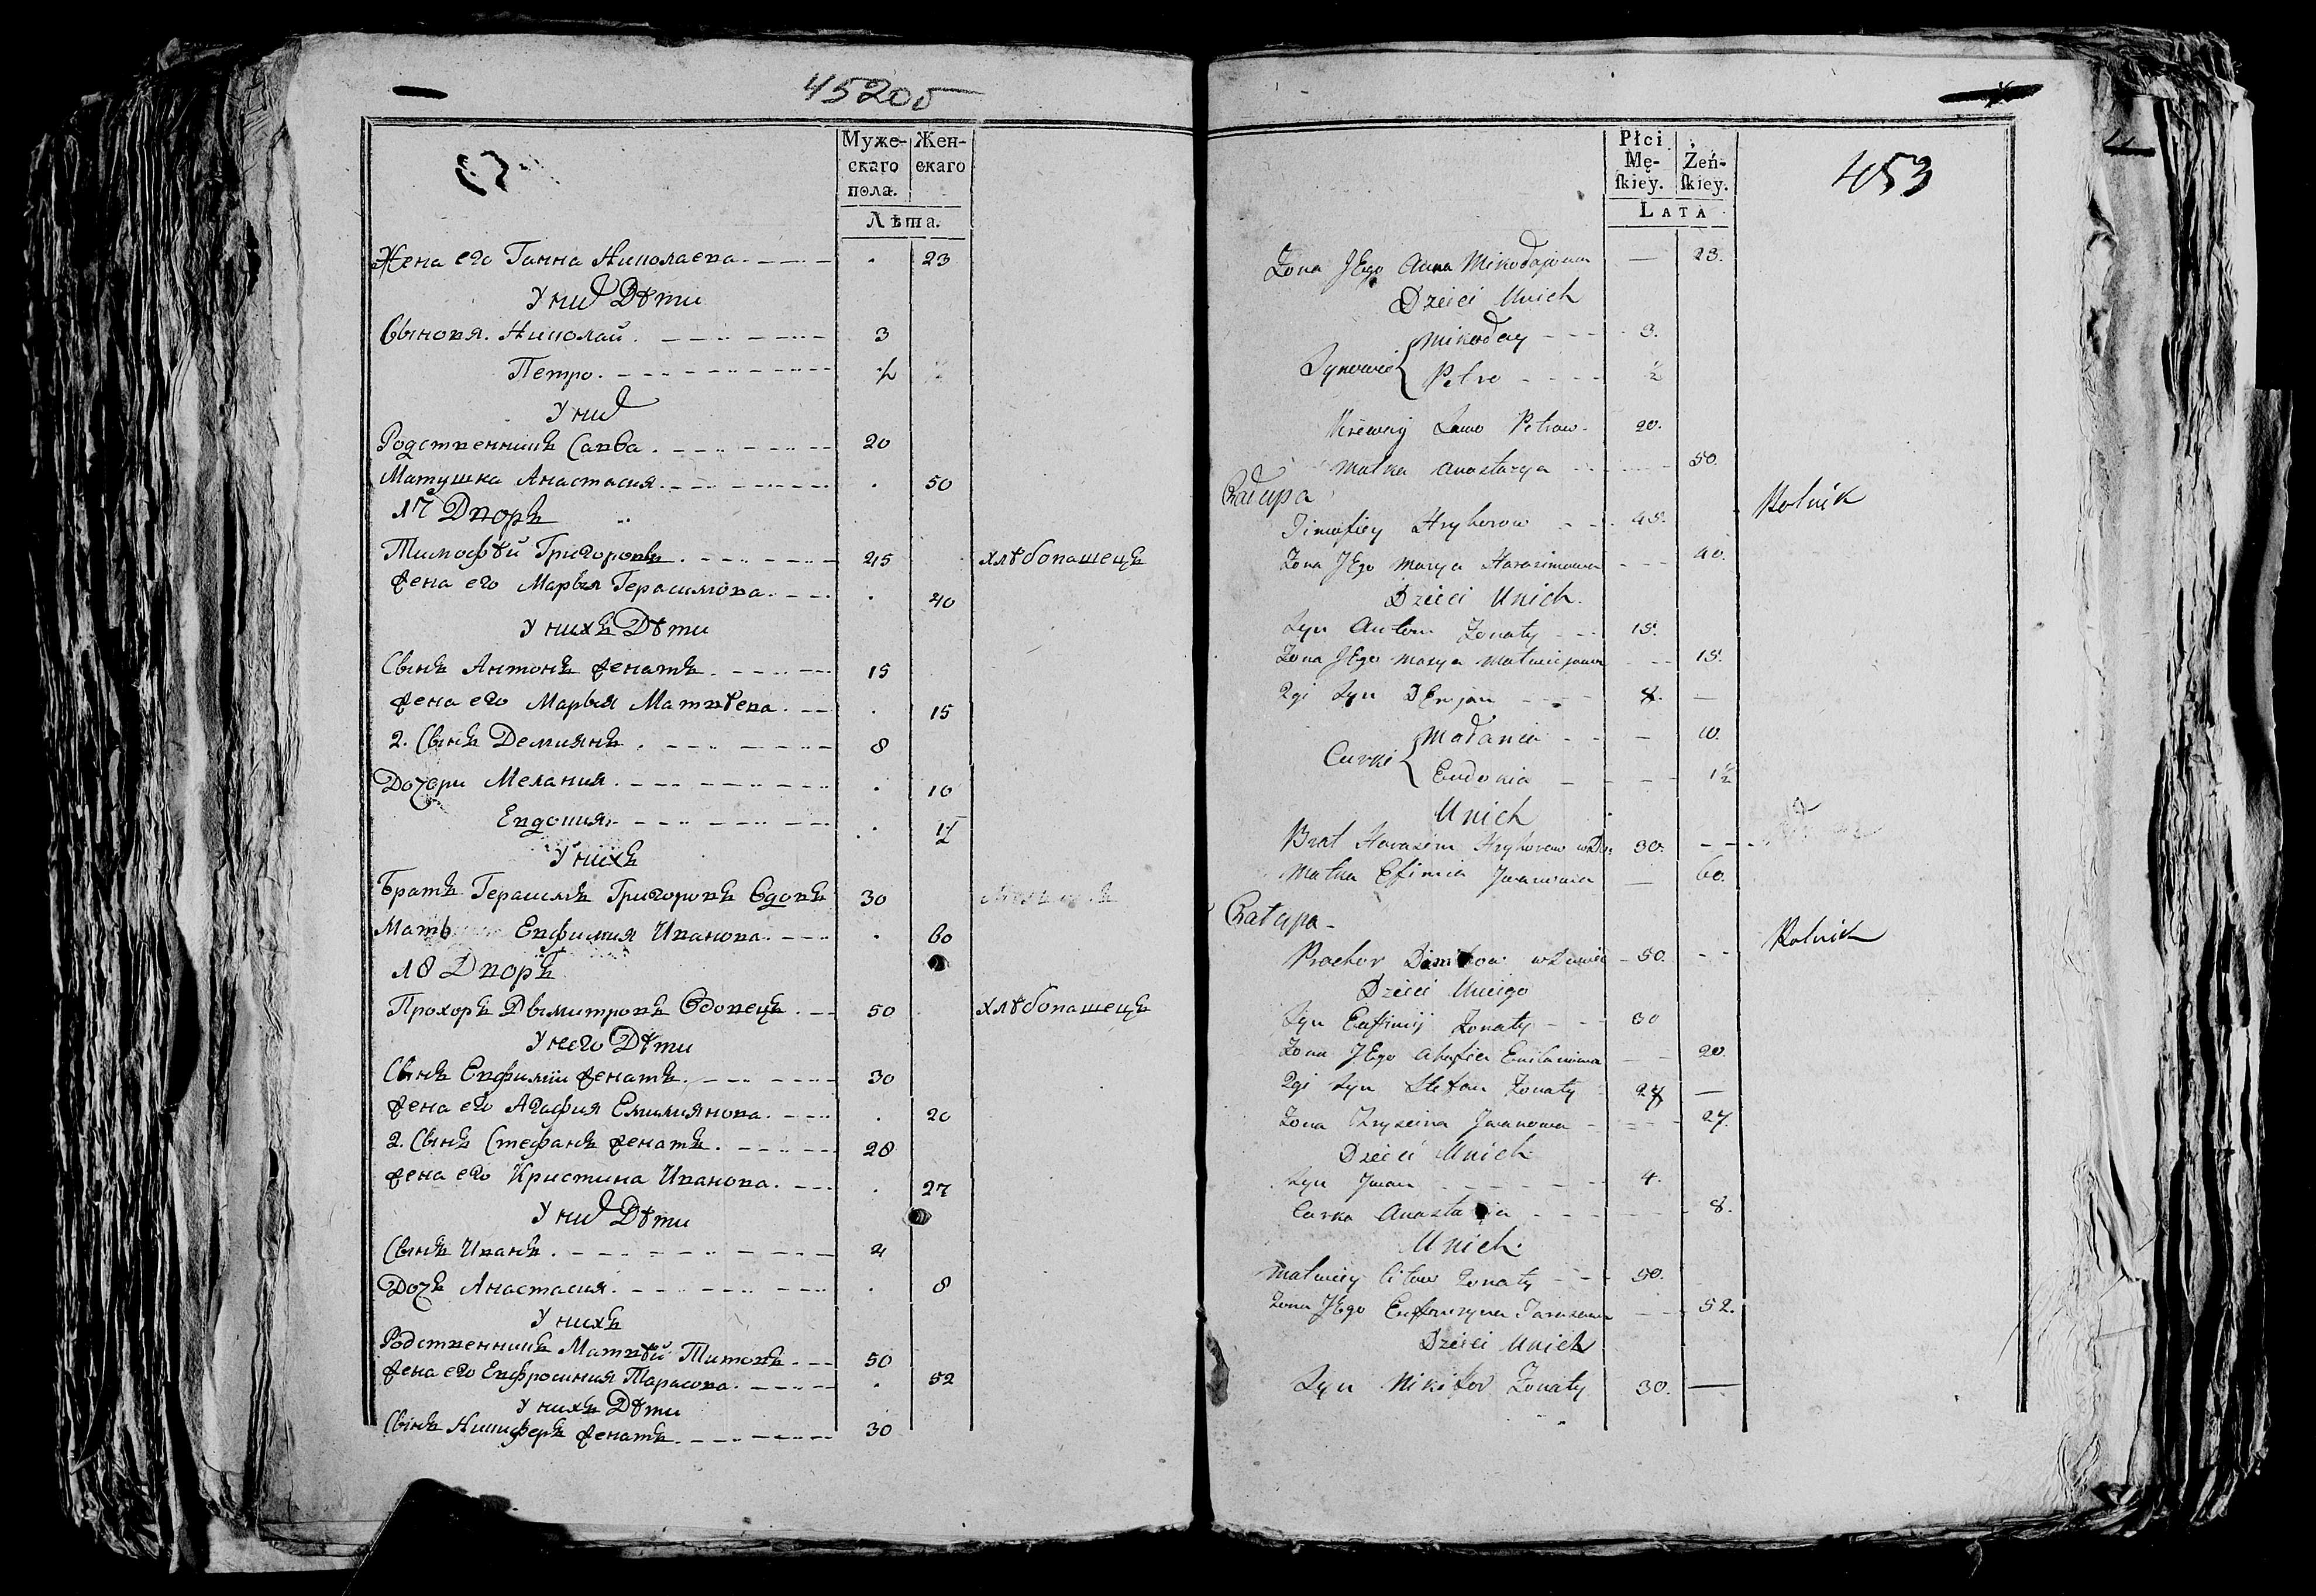 452об
Муже-
скаго
пола.
Жен-
скаго
Лѣта.
Жена его Ганна Николаева 23
У них Дѣти
Сыновя. Николай 3
Петро ½
У них
Родственникъ Савва 20
Матушка Анастасия 50
17 Дворъ
Тимофѣй Григоровъ 45 хлѣбопашецъ
жена его Марья Герасимова 40
У нихъ Дѣти
Сынъ Антонъ женатъ 15
жена его Марья Матвѣева 15
2. Сынъ Демиянъ 8
Дочери Мелания 10
Евдокия 1½
У нихъ
Братъ Герасимъ Григоровъ Вдовъ 30
Мать Евфимия Иванова 60
18 Дворъ
Прохоръ Дымитровъ Вдовецъ 50 хлѣбопашецъ
У него Дѣти
Сынъ Евфимии женатъ 30
жена его Агафия Емилиянова 20
2. Сынъ Стефанъ женатъ 28
жена его Кристина Иванова 27
У них Дѣти
Сынъ Иванъ 4
Дочъ Анастасия 8
У нихъ
Родственникъ Матвѣй Титовъ 50
жена его Евфросиния Тарасова 52
У нихъ Дѣти
Сынъ Никиферъ женатъ 30
453
Płci
Mę-
ſkiey.
Żeń-
ſkiey.
LATA
Zona JEgo Anna Mikołajowna 23.
Dzieci Unich
Synowie Mikołay 3.
Petro ½
Krewny Sawa Petrow 20.
Matka Anastazya 50.
Chałupa Rolnik
Timofiey Hryhorow 45.
Zona JEgo Marya Harasimowa 40.
Dzieci Unich
Syn Anton Zonaty 15.
Zona JEgo Marya Matwiejowa 15.
2gi Syn DEmjan 8.
Curki Małania 10.
Eudokia 1½
Unich
Brat Harasim Hryhorow 30.
Matka Efimia Jwanowa 60.
Chałupa Rolnik
Prochor Dimitrow wdowiec 50.
Dzieci Uniego
Syn Eufimij Zonaty 30
Zona JEgo Ahafia Emilanowa 20.
2gi Syn Stefan Zonaty 28
Zona Krystina Jwanowa 27.
Dzieci Unich
Syn Jwan 4.
Curka Anastazia 8.
Unich
Matwiey Titow Zonaty 50.
Zona JEgo Eufrozyna Tarasowa 52.
Dzieci Unich
Syn Nikifor Zonaty 30.